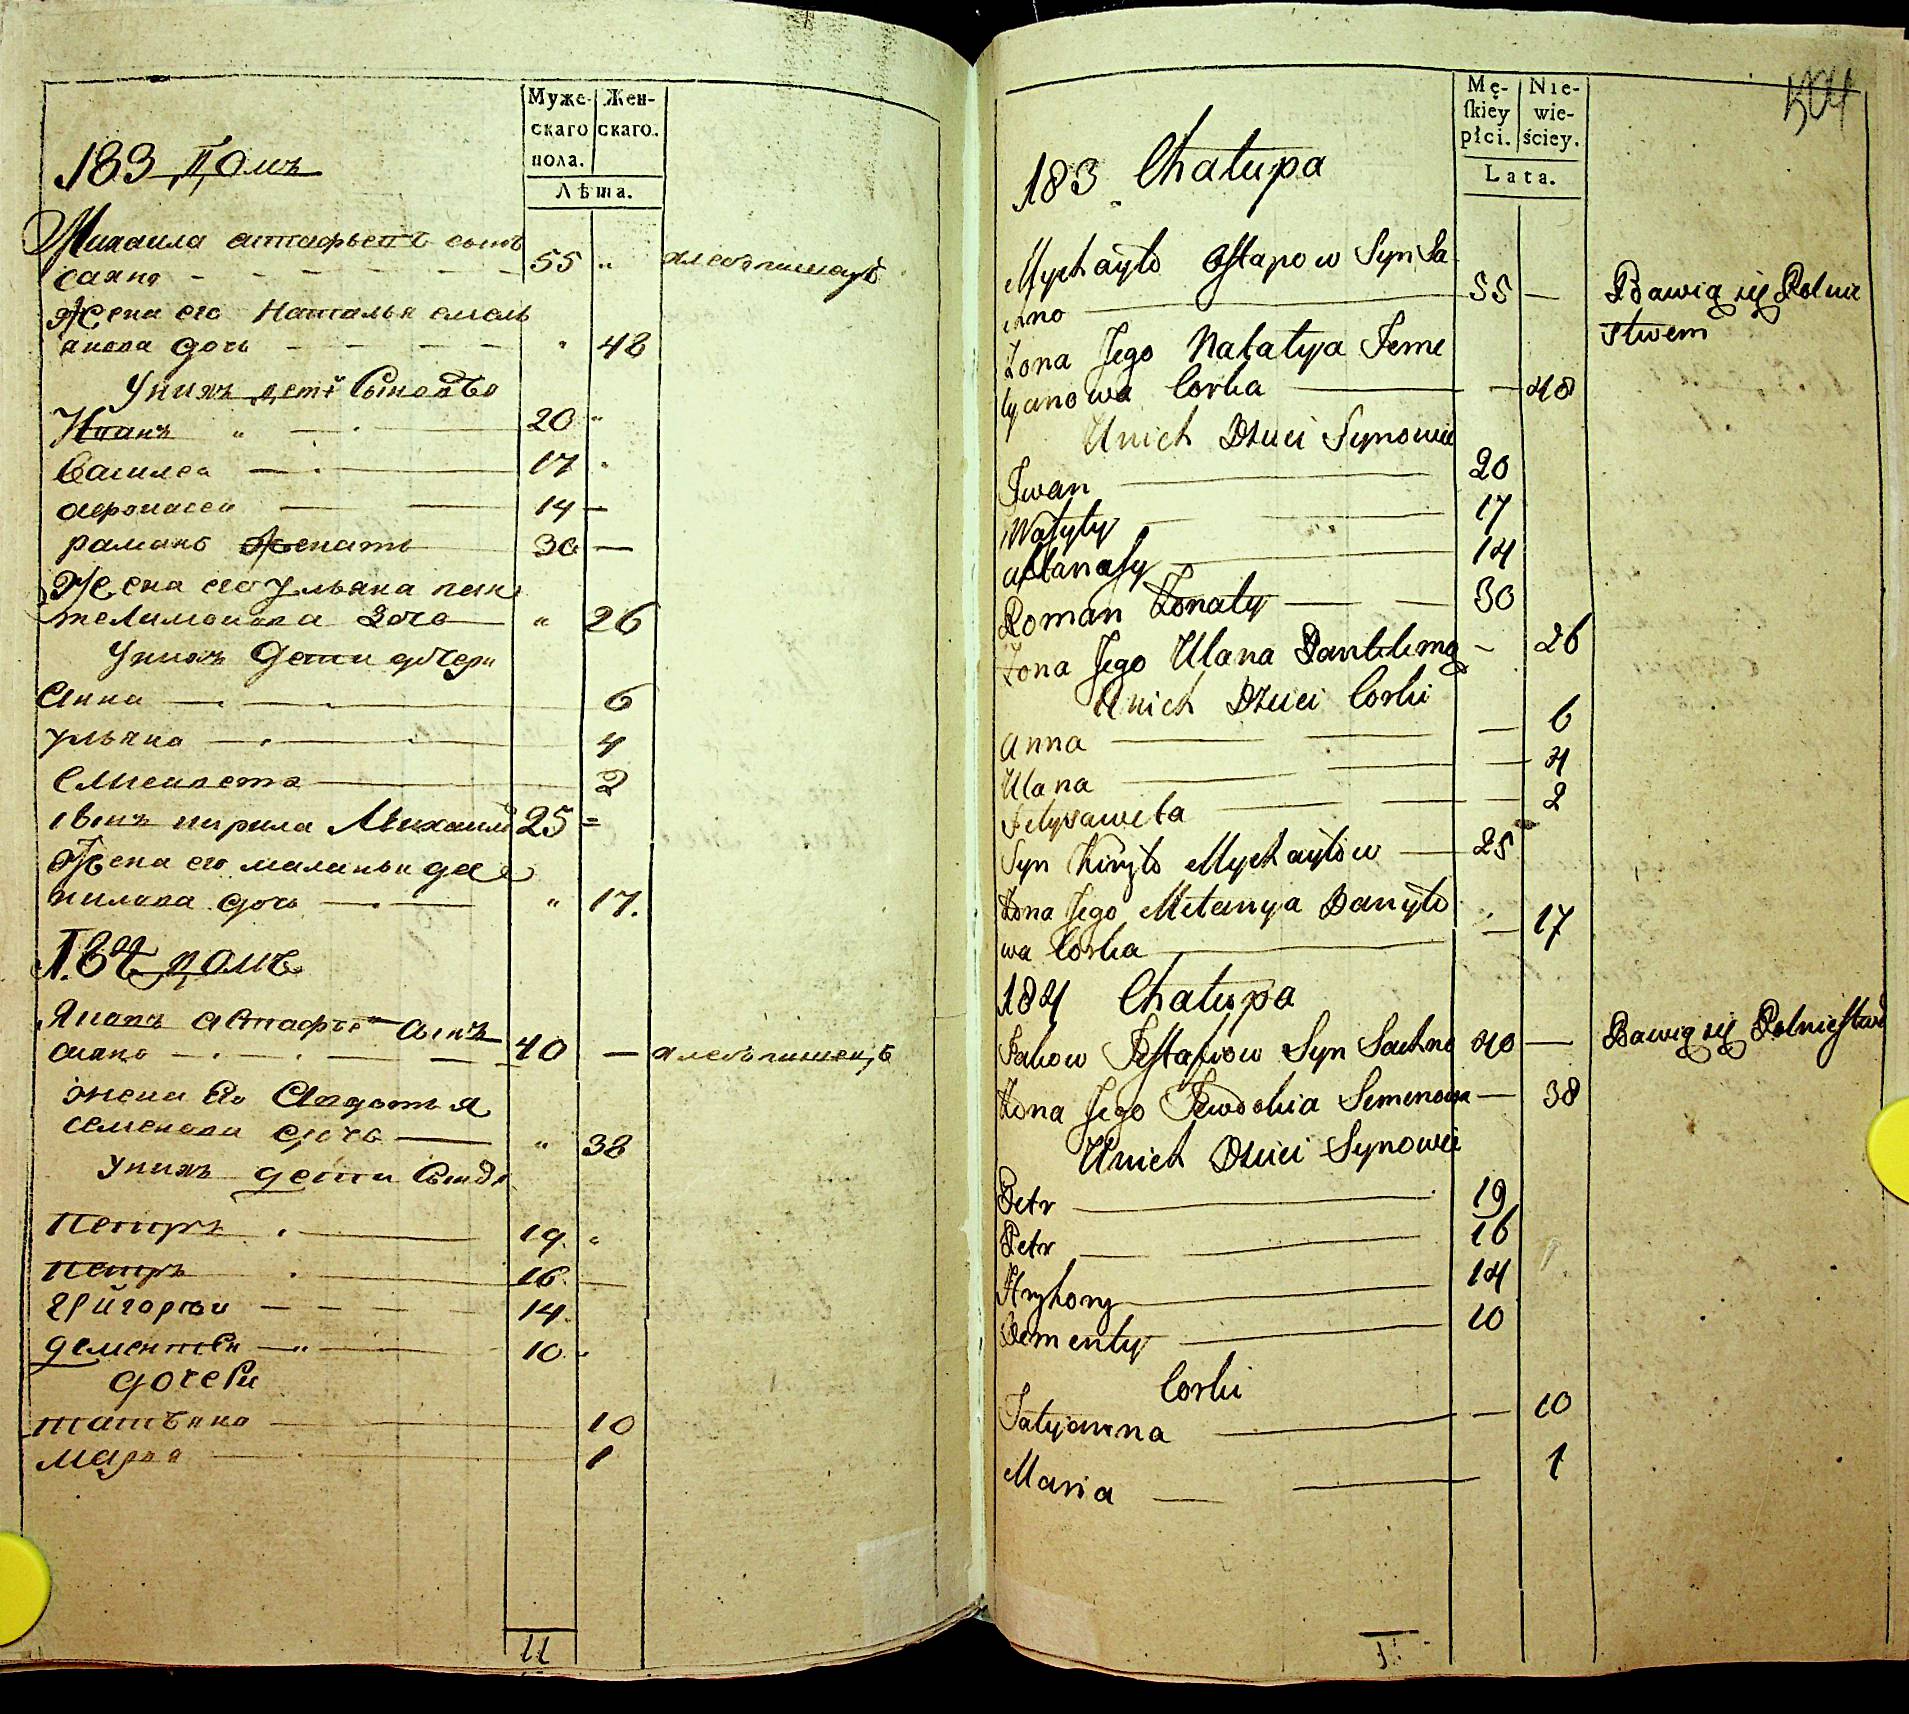 Муже-
скаго
пола.
Жен-
скаго.
Лѣта.
183 домъ
Михаила астафьевъ сынъ
сахно 55 хлебопашецъ
Жена его Наталья емель
янова дочь 48
Унихъ дети Сыновьо
Иванъ 20
Василеи 17
афонасеи 14
раманъ женатъ 30
Жена его ульяна пан
телимонова дочь 26
Унихъ дети дочери
Анна 6
ульяна 4
Елисавета 2
сынъ кирила Михаило 25
Жена его маланья да
нилова дочь 17.
184 домъ
Яковъ астафьевъ сынъ
сахно 40 хлебопашецъ
жена Ево Авдотья
семенова дочь 38
Унихъ дети Сынов
Петръ 19
Петръ 16
григореи 14
дементеи 10
дочери
татьяна 10
марья 1
11
504
Mę-
ſkiey
płci.
Nie-
wie-
ściey.
Lata.
183 Chałupa
Mychayło Ostapow Syn Sa
chno 55 Bawią się Rolnic
stwem
Żona Jego Natalya Jeme
lyanowa Corka 48
Unich Dzieci Synowie
Iwan 20
Wasyly 17
Afanasy 14
Roman Żonaty 30
Żona Jego Ulana Pantelimo 26
Unich Dzieci Corki
Anna 6
Ulana 4
Jelysaweta 2
Syn Kiryło Mychayłow 25
Żona Jego Melanya Danyło
wa Corka 17
184 Chałupa
Jakow Jestafiow Syn Sachno 40 Bawią się Rolnictwe
Żona Jego Jewdokia Semenowa 38
Unich Dzieci Synowie
Petr 19
Petr 16
Hryhory 14
Dementy 10
Corki
Tatyanna 10
Maria 1